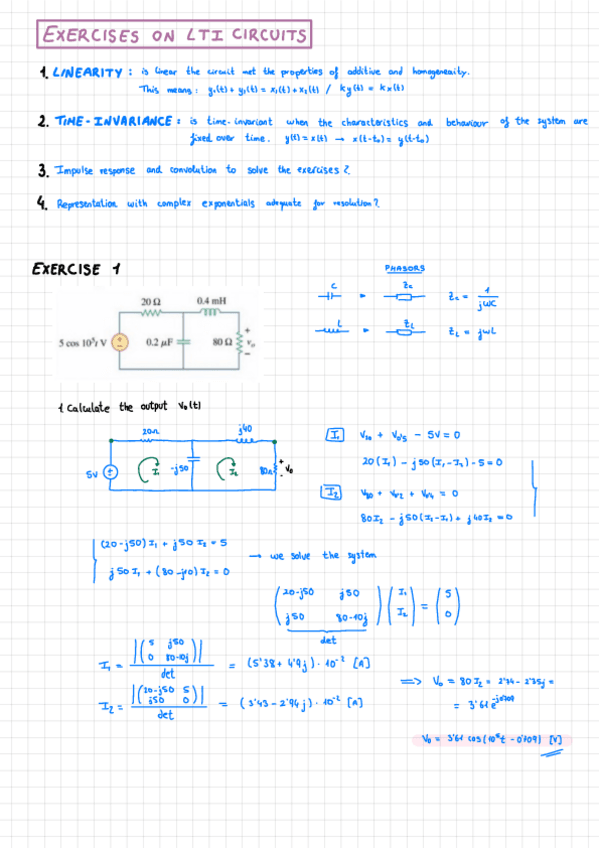 EXERCISES ON LTI CIRCUITS
1. LINEARITY : is linear the circuit met the properties of additive and homogeneaity.
This means: y₁(t) + y₂(t) = x₁(t) + x₂(t) / ky(t) = kx(t)
2. TIME-INVARIANCE : is time-invariant when the characteristics and behaviour of the system are
fixed over time. y(t) = x(t) → x(t-t₀) = y(t-t₀)
3. Impulse response and convolution to solve the exercises?
4. Representation with complex exponentials adequate for resolution?
EXERCISE 1
PHASORS
C Zc Zc = 1/jωC
L ZL ZL = jωL
20 Ω 0.4 mH
5 cos 10⁵t V 0.2 μF 80 Ω + vo −
1 Calculate the output Vo(t)
20Ω j40
5V I₁ -j50 I₂ 80Ω + Vo -
I₁ V20 + V0'5 - 5V = 0
20(I₁) - j50(I₁-I₂) - 5 = 0
I₂ V80 + V0'2 + V0'4 = 0
80I₂ - j50(I₂-I₁) + j40I₂ = 0
(20-j50) I₁ + j50 I₂ = 5
j50 I₁ + (80-j10) I₂ = 0
→ we solve the system
(20-j50 j50 j50 80-10j) (I₁ I₂) = (5 0)
det
I₁ = |(5 j50 0 80-10j)| / det = (5'38 + 4'9j) · 10⁻² [A]
I₂ = |(20-j50 5 j50 0)| / det = (3'43 - 2'94j) · 10⁻² [A]
⇒ Vo = 80 I₂ = 2'74 - 2'35j =
= 3'61 e^-j0'709
Vo = 3'61 cos(10⁵t - 0'709) [V]